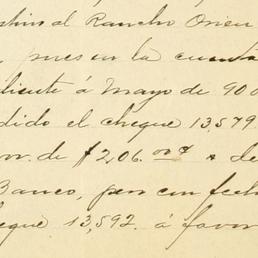 al Rancho Orien
, pues en la cuenta
diente á Mayo de 900
dido el cheque 13,579.
or. de $2,06. de
Banco, pero con fech
eque 13,592. á favor